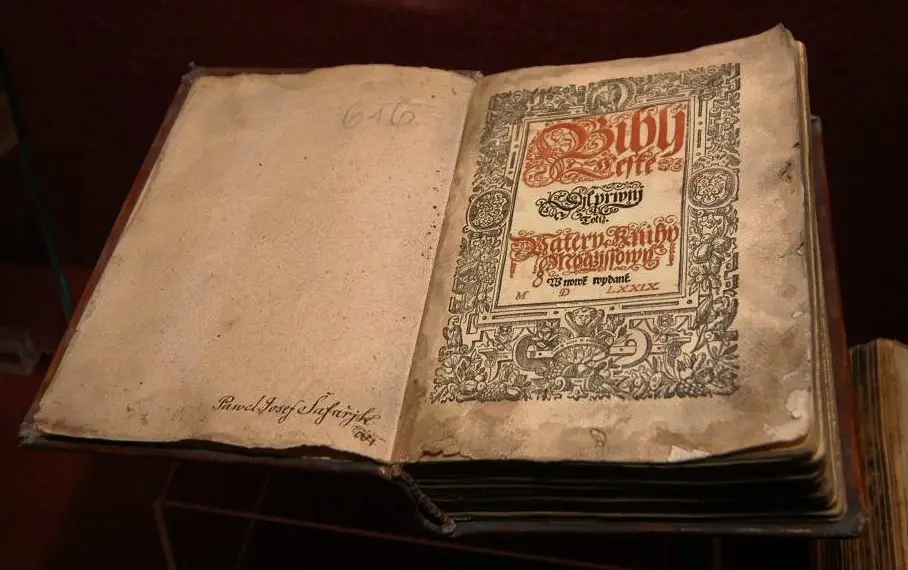 616
Pawel Josef Šafařjk
Biblj
Cžeské
Djl prwnj
Totiž.
Patery Knihy
Mogžissowy
W nowě wydané
M D LXXIX.